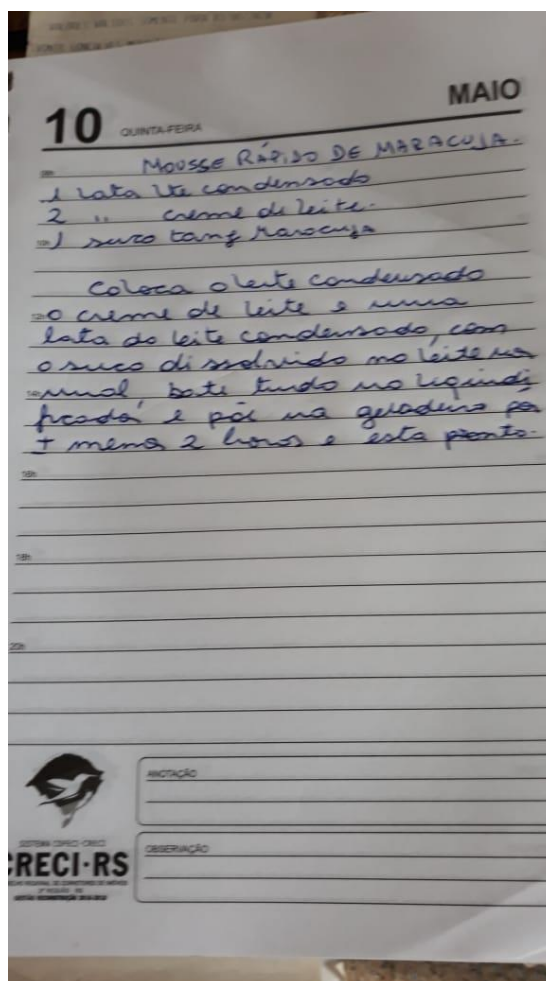 MAIO
10 QUINTA-FEIRA
MOUSSE RÁPIDO DE MARACUJA.
1 Lata Lte condensado
2 " creme de leite.
1 suco tang Maracuja
Coloca o leite condensado
o creme de leite e uma
lata do leite condensado, com
o suco dissolvido no leite na
tural, bate tudo no liquidi
ficador e põe na geladeira por
+ menos 2 horas e esta pronto.
16h
18h
20h
ANOTAÇÃO
SISTEMA COFECI-CRECI
OBSERVAÇÃO
CRECI-RS